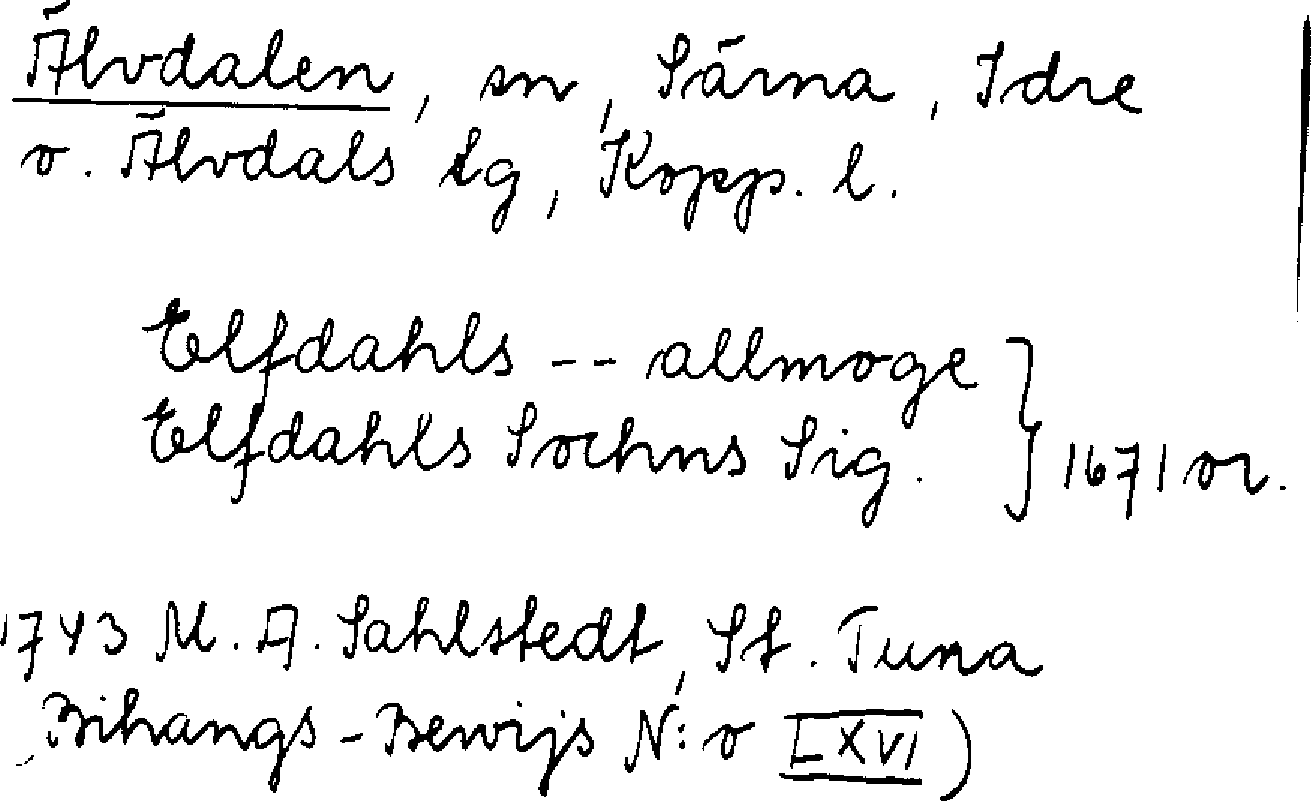 Älvdalen, sn, Särna, Idre
o. Älvdals tg, Kopp. l.
Elfdahls -- allmoge
Elfdahls Sochns Sig. } 1671 or.
1743 M. A. Sahlstedt, St. Tuna
Bihangs-Bewijs N:o LXVI)